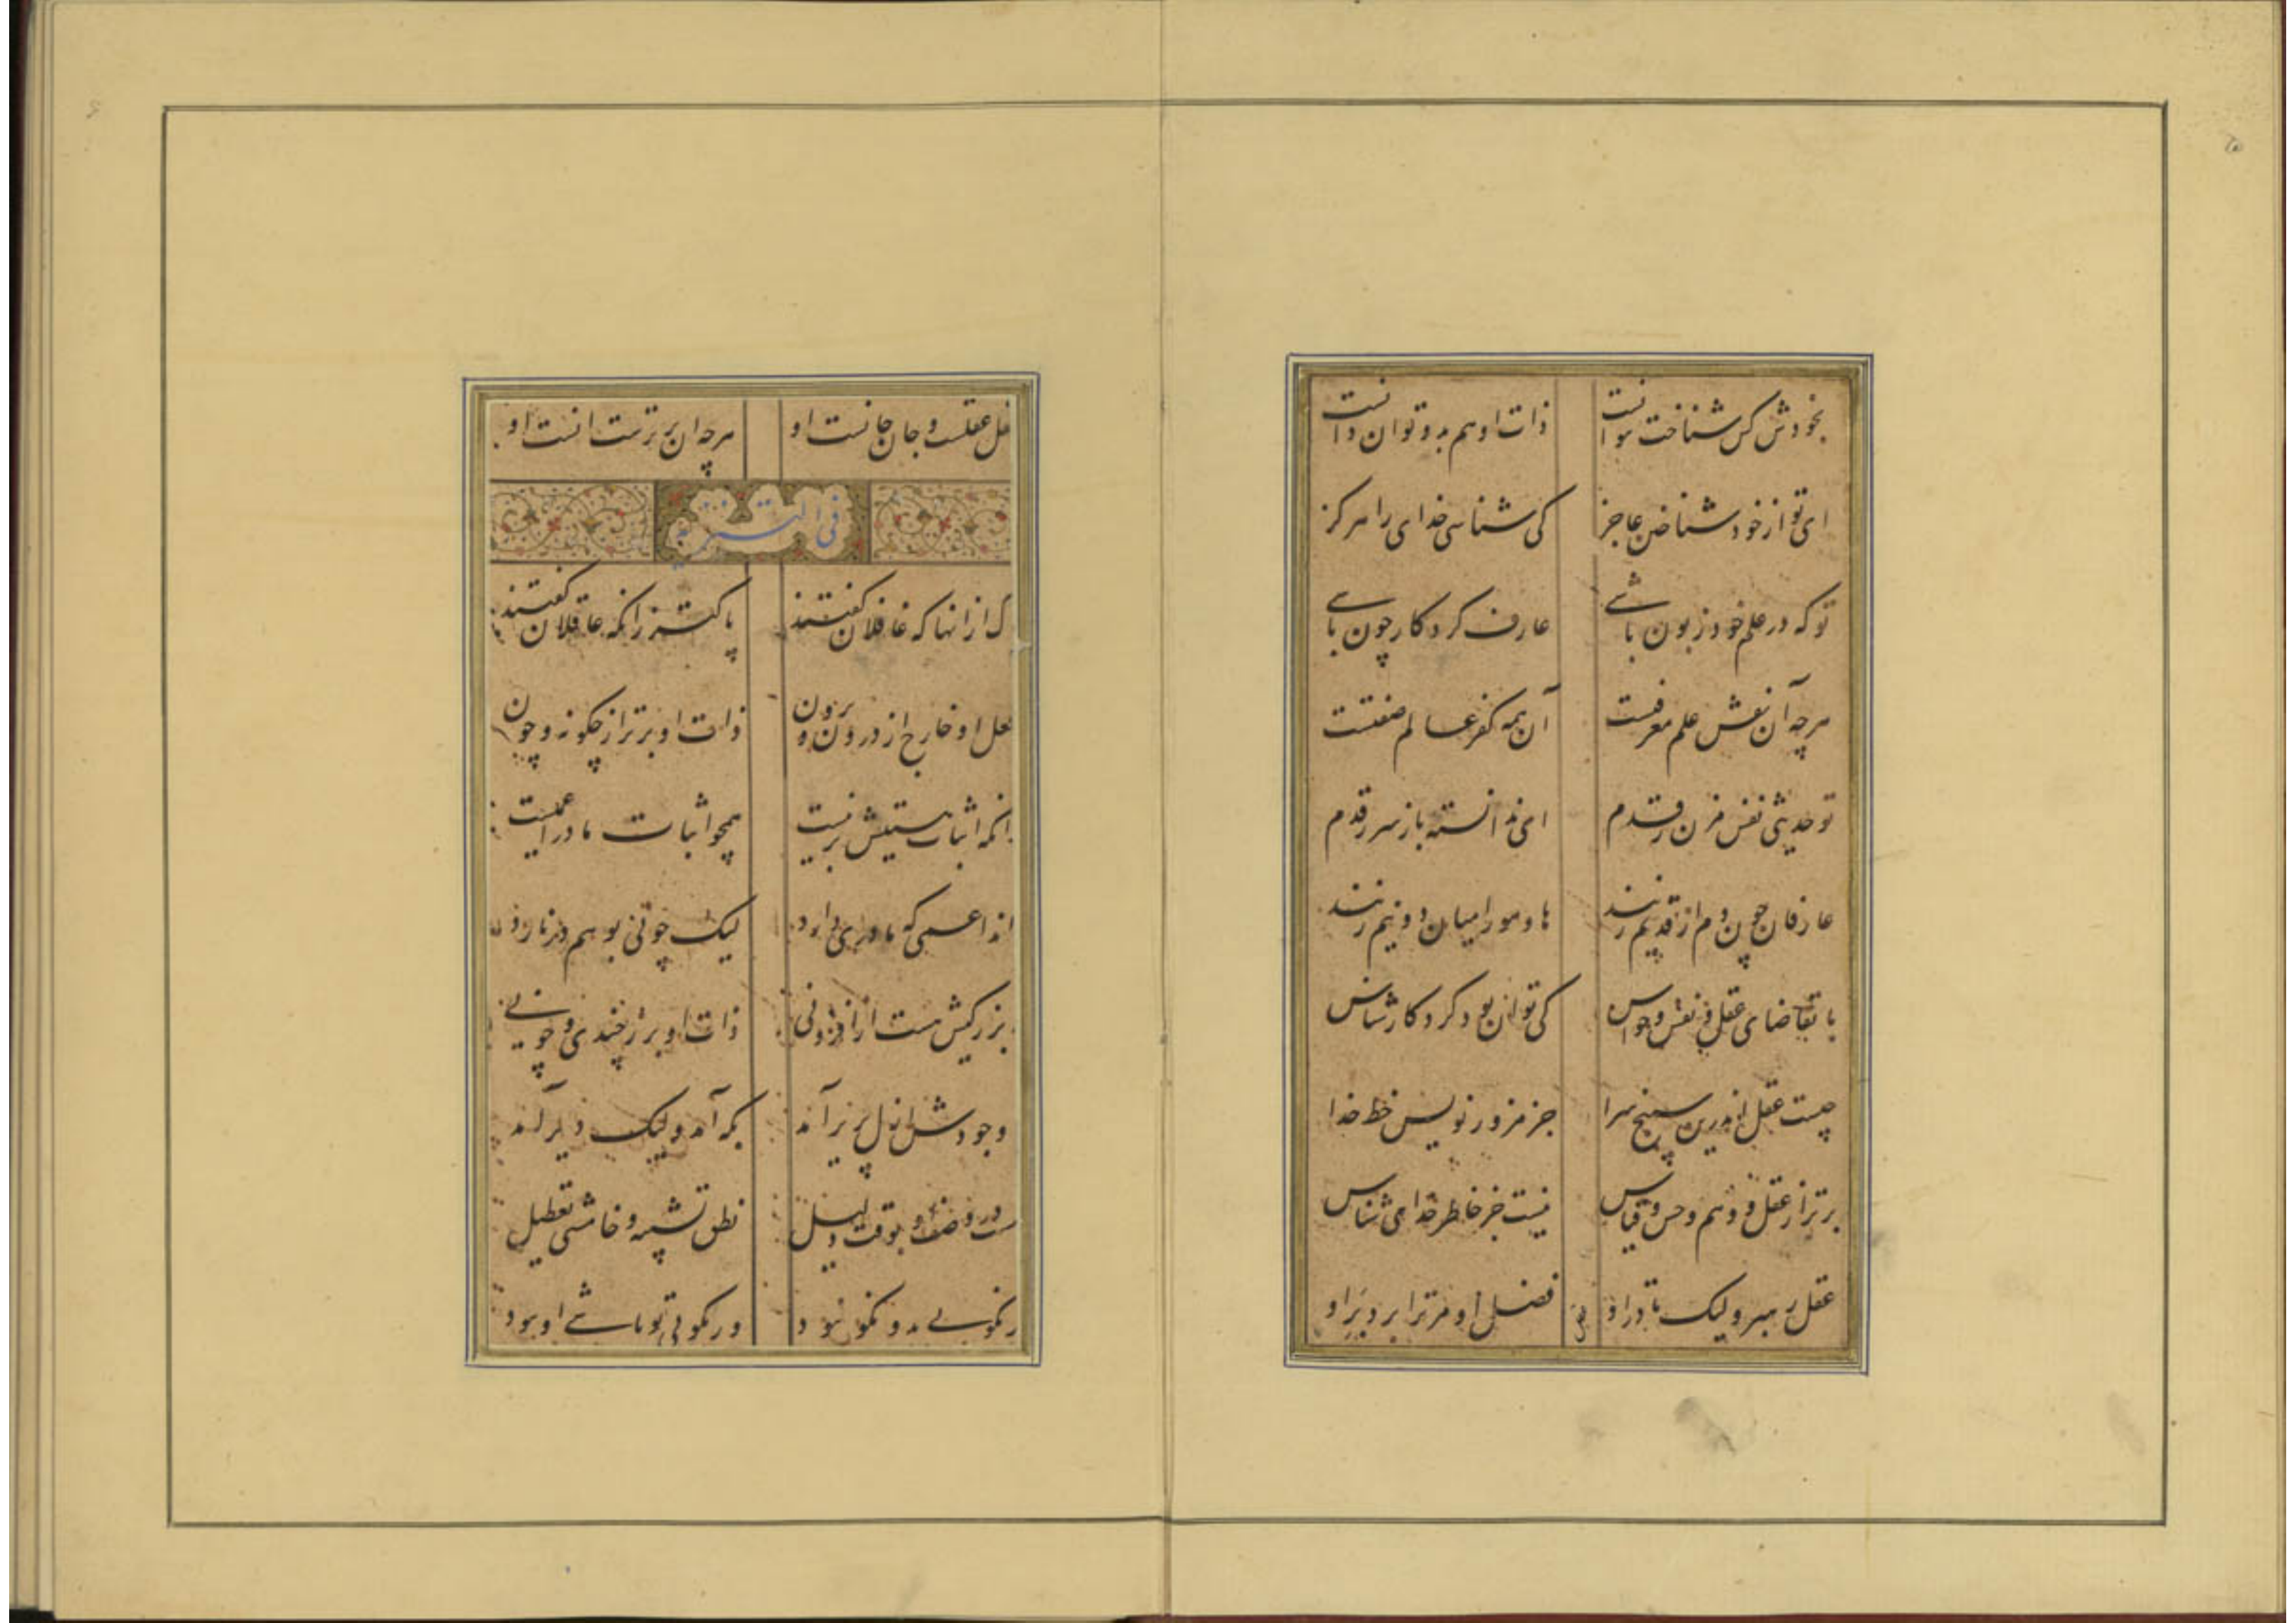 بخودش کس شناخت نتوانست ذات او هم بدو توان دانست
ای تو از خود شناختن عاجز کی شناسی خدای را هرگز
تو که در علم خود زبون باشی عارف کردکار چون باشی
هرچه آن نقش علم معرفتست آن همه کفر عالم صفتست
تو حدیثی نفس مزن ز قدم ای ندانسته باز سر ز قدم
عارفان چون دم از قدیم زنند ها و هو را میان دو نیم زنند
با تقاضای عقل و نفس و حواس کی توان بود کردکار شناس
چیست عقل اندرین سپنج سرا جز مزور نویس خط خدا
برتر از عقل و وهم و حس و قیاس نیست جز خاطر خدای شناس
عقل رهبر ولیک تا در او فضل او مر ترا برد بر او
عقل عقلست و جان جانست او هرچه ان برترست انست او
فی التنزیه
ک از انها که غافلان کفتند پاکتر زانکه عاقلان کفتند
فعل او خارج از درون و برون ذات او برتر از چکونه و چون
انکه اثبات هستیش بر نیست همچو اثبات مادر اعمیست
اند اعمی که مادری دارد لیک چونی بوهم در نارد
بزرکیش هست از افزونی ذات او بر ز چندی و چونی
وجودش ازل پریر آمد بکه آمد ولیک دیر آمد
ست در وصف او بوقت دلیل نطق تشبیه و خامشی تعطیل
ر نکوئی بدو نکو نبود ور نکوئی تو باشی او نبود